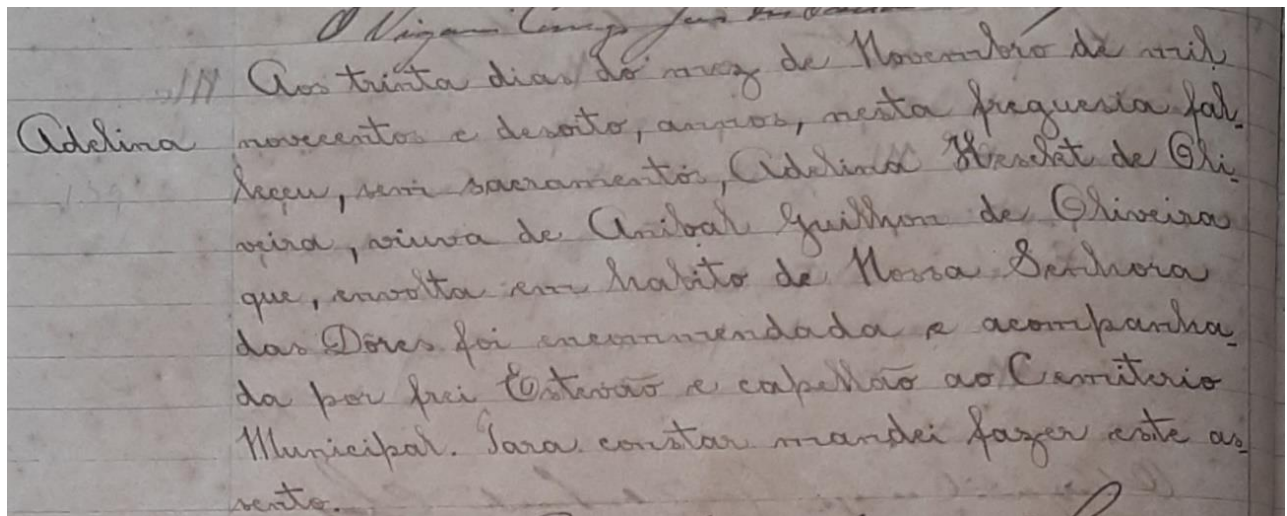 O Vigario
Aos trinta dias do mez de Novembro de mil
Adelina novecentos e desoito, annos, nesta freguesia fal-
leceu, sem sacramentos, Adelina de Oli-
veira, viuva de Anibal Guilhon de Oliveira
que, envolta em habito de Nossa Senhora
das Dores foi encommendada e acompanha-
da por frei Estevão e capellão ao Cemiterio
Municipal. Para constar mandei fazer este as-
sento.